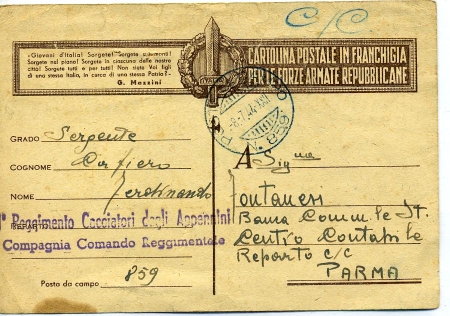 C/C
«Giovani d'Italia! Sorgete! Sorgete sui monti!
Sorgete nel piano! Sorgete in ciascuna delle nostre
città! Sorgete e per tutti! Non siete Voi figli
di una stessa Italia, in cerca di una stessa Patria?»
G. Mazzini
CARTOLINA POSTALE IN FRANCHIGIA
PER LE FORZE ARMATE REPUBBLICANE
N. 859
GRADO Sergente
COGNOME
NOME Ferdinando
REPARTO
1° Reggimento Cacciatori degli Appennini
Compagnia Comando Reggimentale
Posta da campo 859
A Sig.na
Fontanesi
Banca Comm.le It.
Centro Contabile
Reparto c/c
PARMA